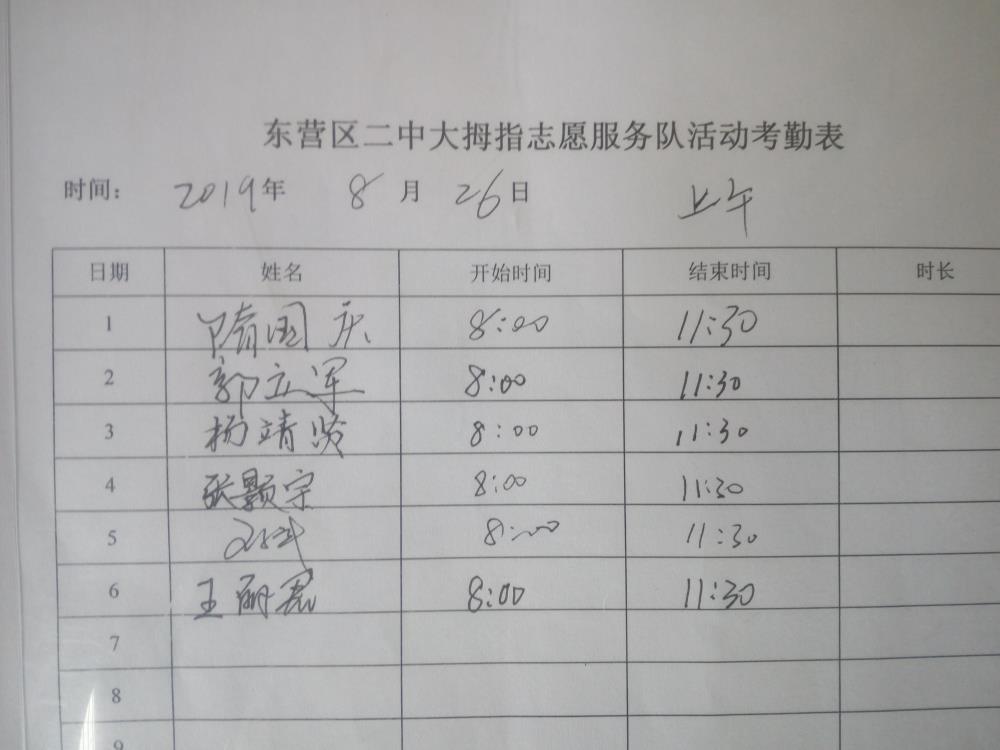 东营区二中大拇指志愿服务队活动考勤表
时间： 2019年 8月 26日 上午
日期 姓名 开始时间 结束时间 时长
1 隋国庆 8:00 11:30
2 郭立军 8:00 11:30
3 杨靖贤 8:00 11:30
4 张颢宗 8:00 11:30
5 8:00 11:30
6 王丽 8:00 11:30
7
8
9